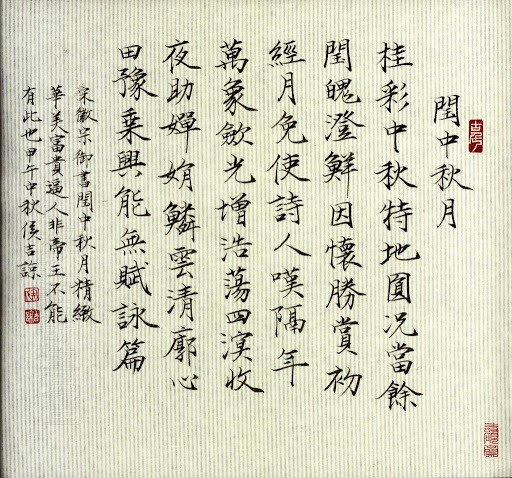 閏中秋月
桂彩中秋特地圓況當餘
閏魄澄鮮因懷勝賞初
經月免使詩人嘆隔年
萬象歛光增浩蕩四溟收
夜助嬋娟鱗雲清廓心
田豫乘興能無賦詠篇
宋徽宗御書閏中秋月精緻
華美富貴逼人非帝王不能
有此也甲午中秋侯吉諒